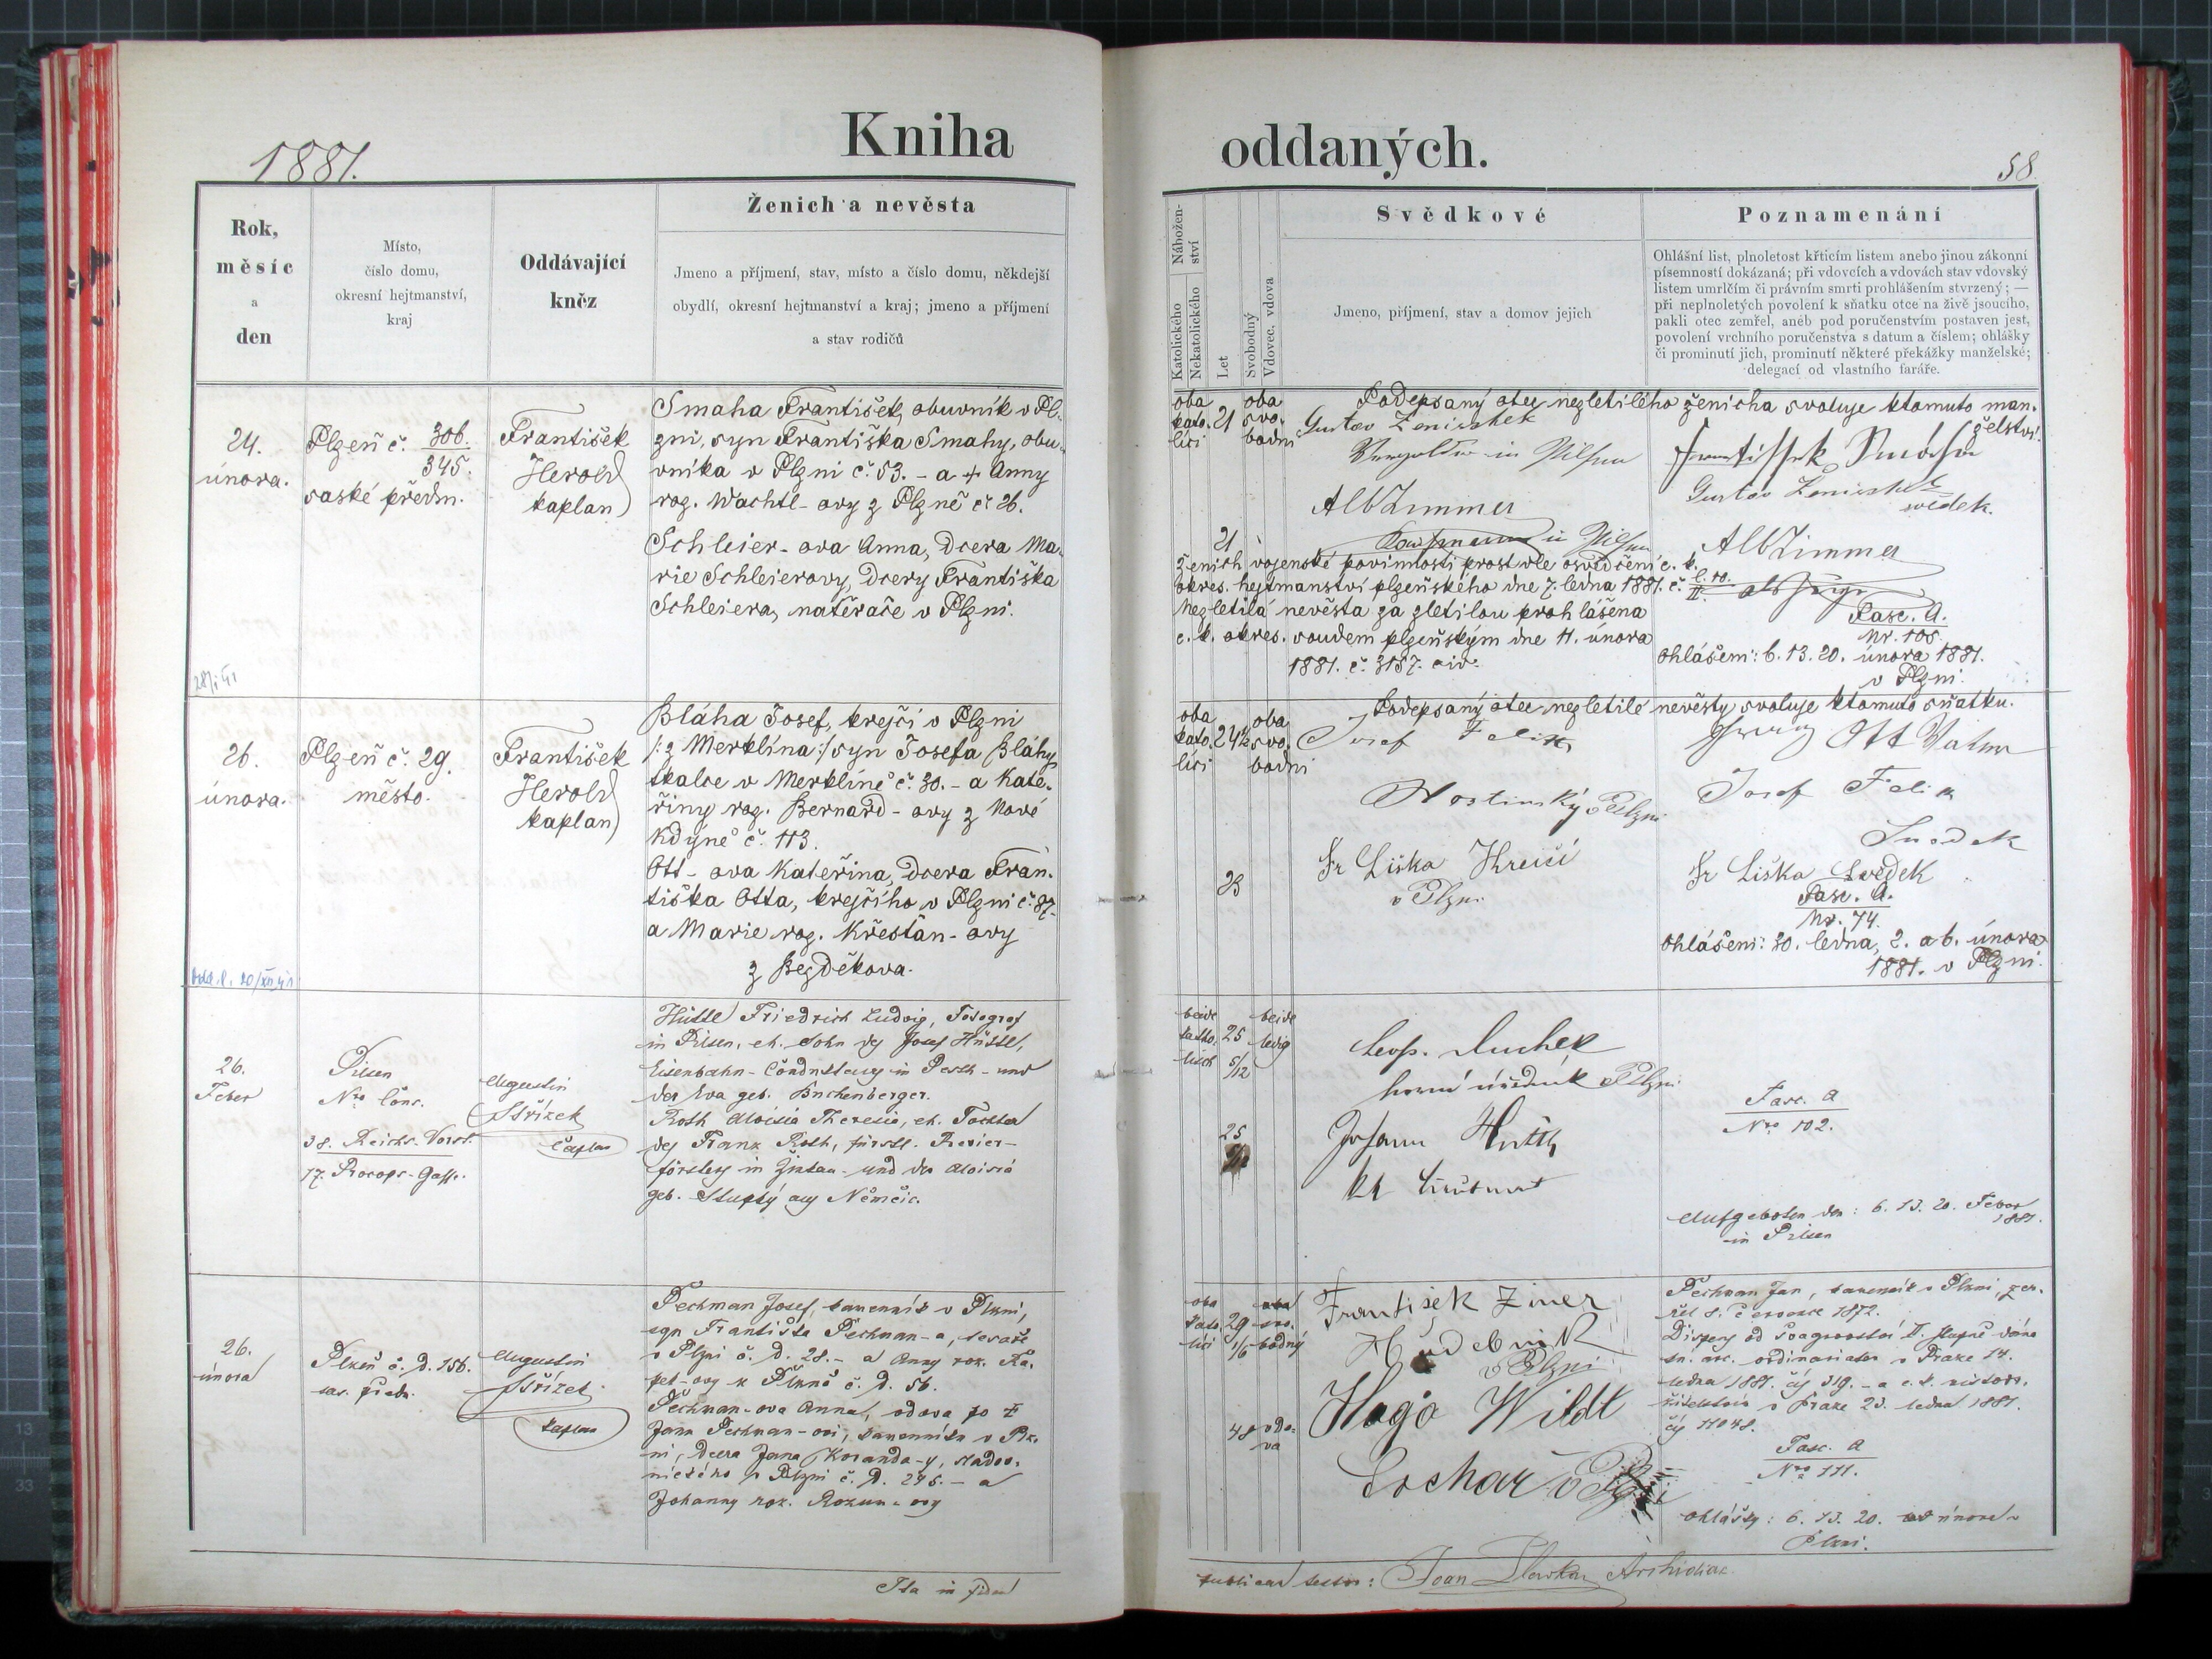 1881.
Kniha
Rok,
měsíc
a
den
Místo,
číslo domu,
okresní hejtmanství,
kraj
Oddávající
kněz
Ženich a nevěsta
Jmeno a příjmení, stav, místo a číslo domu, někdejší
obydlí, okresní hejtmanství a kraj; jmeno a příjmení
a stav rodičů
24.
února.
Plzeň č. 306.
345.
saské předm.
František
Herold
kaplan
Smaha František, obuvník v Pl-
zni, syn Františka Smahy, obu-
vníka v Plzni č. 53. - a + Anny
roz. Wachtl-ovy z Plzně č 26.
Schleier-ova Anna, dcera Ma-
rie Schleierovy, dcery Františka
Schleiera, natěrače v Plzni.
26.
února.
Plzeň č. 29.
město.
František
Herold
kaplan
Bláha Josef, krejčí v Plzni
/: z Merklína :/ syn Josefa Bláhy,
tkalce v Merklíně č. 30. - a Kate-
řiny roz. Bernard-ovy z Nové
Kdýně č. 113.
Ott-ova Kateřina, dcera Fran-
tiška Otta, krejčího v Plzni č. 87.-
a Marie roz. Křesťan-ovy
z Bezděkova.
26.
Feber
Pilsen
Nro Conc.
38. Reichs. Vorst.
17. Procops-Gasse.
Augustin
Střízek
Caplan
Hüttl Friedrich Ludwig, Fotograf
in Pilsen, eh. Sohn des Josef Hüttl,
Eisenbahn-Conducteurs in Pesth - und
der Eva geb. Buchenberger.
Roth Aloisia Theresia, eh. Tochter
des Franz Roth, fürstl. Revier-
försters in Žinkau - und der Aloisia
geb. Slupský aus Němčic.
26.
února
Plzeň č. d. 156.
sas. předm.
Augustin
Střízek
kaplan
Pechman Josef, kameník v Plzni,
syn Františka Pechman-a, tesaře
v Plzni č. d. 28. - a Anny roz. Ka-
pet-ovy z Plzně č. d. 56.
Pechman-ova Anna, vdova po +
Janu Pechman-ovi, kameníku v Plz-
ni, dcera Jana Koranda-y,
v Plzni č. d. 245. - a
Johanny roz. Rozum-ovy
Ita in fidem
oddaných.
58.
Nábožen-
ství
Katolického
Nekatolického
Let
Svobodný
Vdovec. vdova
Svědkové
Jmeno, příjmení, stav a domov jejich
Poznamenání
Ohlášní list, plnoletost křticím listem anebo jinou zákonní
písemností dokázaná; při vdovcích a vdovách stav vdovský
listem umrlčím či právním smrti prohlášením stvrzený; —
při neplnoletých povolení k sňatku otce na živě jsoucího,
pakli otec zemřel, aneb pod poručenstvím postaven jest,
povolení vrchního poručenstva s datum a číslem; ohlášky
či prominutí jich, prominutí některé překážky manželské;
delegací od vlastního faráře.
oba
kato-
líci
21
oba
svo-
bodni
Podepsaný otec nezletilého ženicha svoluje k tomuto man-
želství.
Gustav Zenirshek
in Pilsen
Alb Zimmer
in Pilsen
21
Gustav Zenirshek
svědek.
Alb Zimmer
ženich vojenské povinnosti prost dle osvědčení c. k.
okres. hejtmanství plzeňského dne 7. ledna 1881. č.
Nezletilá nevěsta za zletilou prohlášena
c. k. okres. soudem plzeňským dne 11. února
1881. č. 3137. civ.
Fasc. A.
Nr. 105.
Ohlášeni: 6. 13. 20. února 1881.
v Plzni.
oba
kato-
líci
24½
oba
svo-
bodni
Podepsaný otec nezletilé nevěsty svoluje k tomuto sňatku.
Josef Felix
Hostinský v Plzni
23
Fr Liška Kreičí
v Plzni
Ott Vater
Josef Felix
Svedek
Fr Liška Svědek
Fasc. A.
Nr. 74.
Ohlášeni: 30. ledna, 2. a 6. února
1881. v Plzni.
beide
katho-
lisch
25
5/12
beide
ledig
Leop. Suchek
horní úředník Plzni
25
Johann
Fasc. A
Nro 102.
Aufgeboten den: 6. 13. 20. Feber
1881.
in Pilsen
oba
kato-
líci
29
1/6
svo-
bodný
František Ziner
Hudebnik
v Plzni
48
vdo-
va
Hugo Wildt
Sochař v Plzni
Pechman Jan, kameník v Plzni, zem-
řel 8. července 1872.
Dispens od švagrovství I. stupně dána
kn. arc. ordinariatem v Praze 14.
ledna 1881. čís 319. - a c. k. místodr-
žitelství v Praze 23. ledna 1881.
čís
Fasc. A
Nro 111.
Ohlášky: 6. 13. 20. února v
Plzni.
Joan Archidiac.